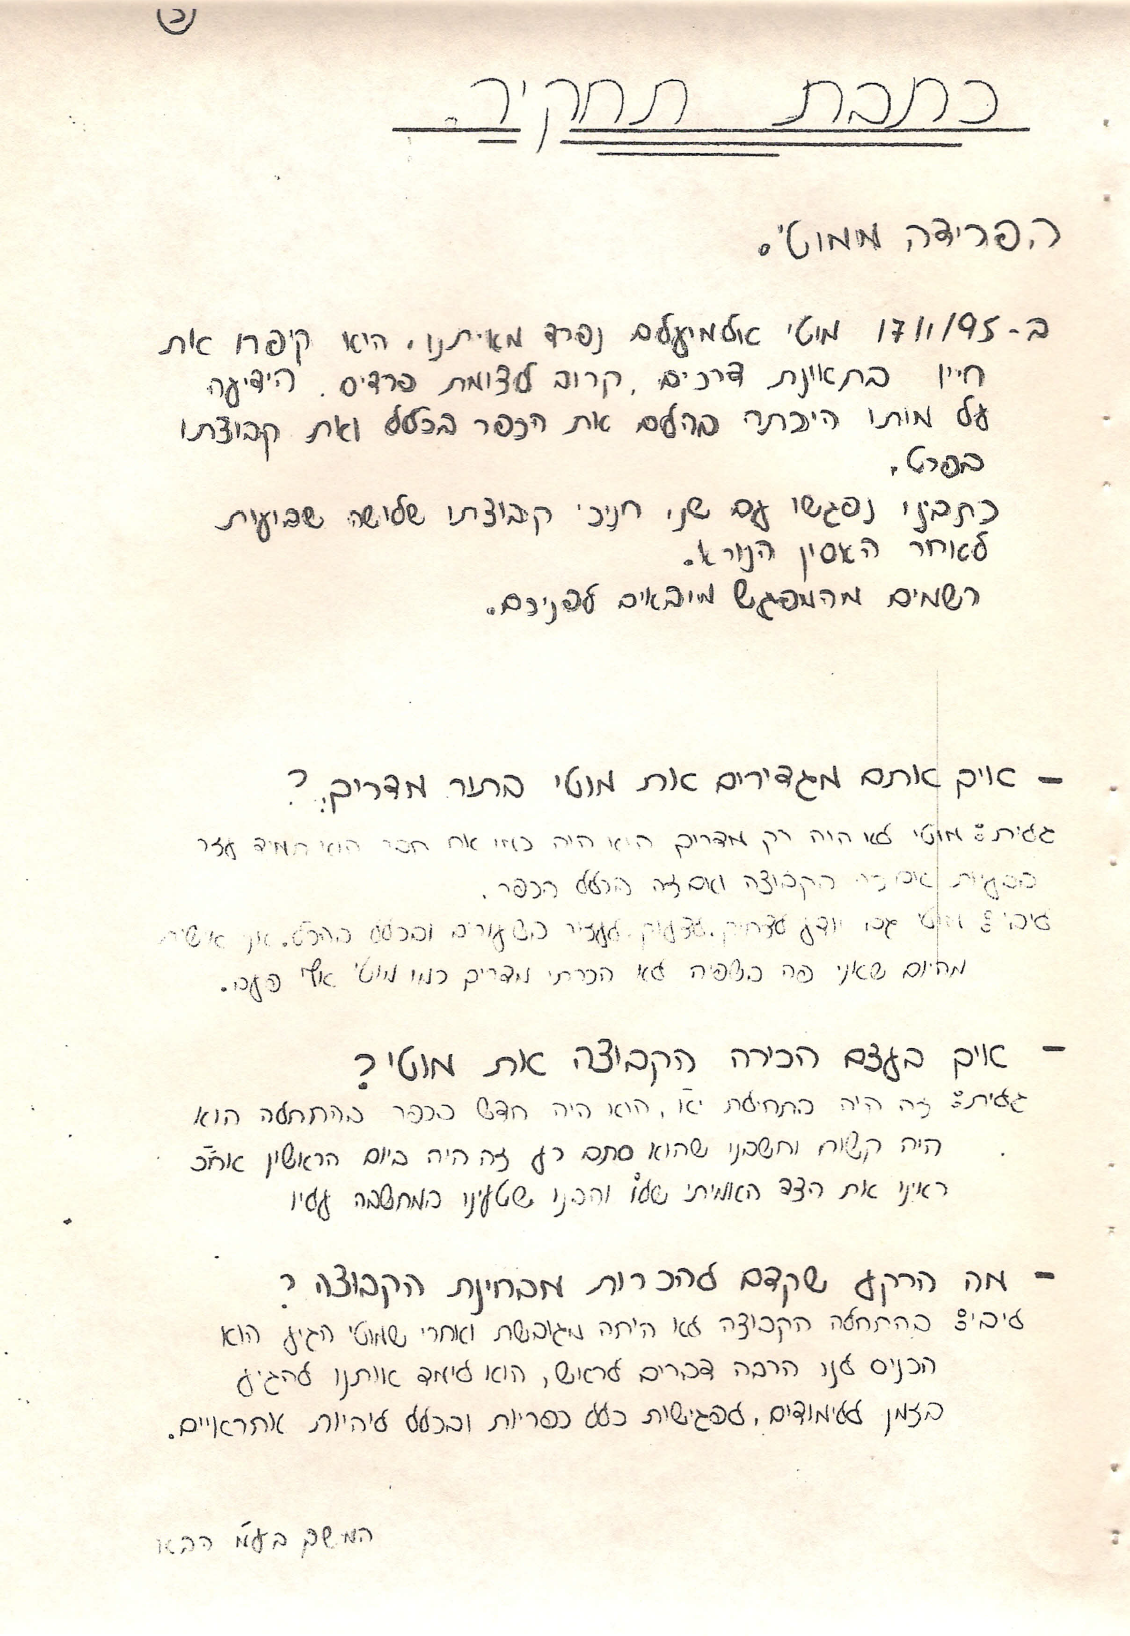 כתבת תחקיר
הפרידה ממוטי.
ב-17/1/95 מוטי נפרד מאיתנו. הוא קיפח את
חייו בתאונת דרכים, קרוב לצומת פרדיס. הידיעה
על מותו היכתה בהלם את הכפר בכלל ואת קבוצתו
בפרט.
כתבינו נפגשו עם שני חניכי קבוצתו שלושה שבועות
לאחר האסון הנורא.
רשמים מהמפגש מובאים לפניכם.
- איך אתם מגדירים את מוטי בתור מדריך?
גלית: מוטי לא היה רק מדריך הוא היה כמו אח חבר הוא תמיד עזר
בבעיות אם זה הקבוצה ואם זה בכלל הכפר.
ליבי: מוטי גם יודע לצחוק, לצעוק, לעזור בשעורים ובכלל בהכל. אני אישית
מהיום שאני פה בשפיה לא הכרתי מדריך כמו מוטי אף פעם.
- איך בעצם הכירה הקבוצה את מוטי?
גלית: זה היה בתחילת י"א, הוא היה חדש בכפר בהתחלה הוא
היה קשוח וחשבנו שהוא סתם רע זה היה ביום הראשון אח"כ
ראינו את הצד האמיתי שלו והבנו שטעינו במחשבה עליו
- מה הרקע שקדם להכרות מבחינת הקבוצה?
ליבי: בהתחלה הקבוצה לא היתה מגובשת ואחרי שמוטי הגיע הוא
הכניס לנו הרבה דברים לראש, הוא לימד אותנו להגיע
בזמן ללימודים, לפגישות כלל כפריות ובכלל להיות אחראיים.
המשך בעמ' הבא